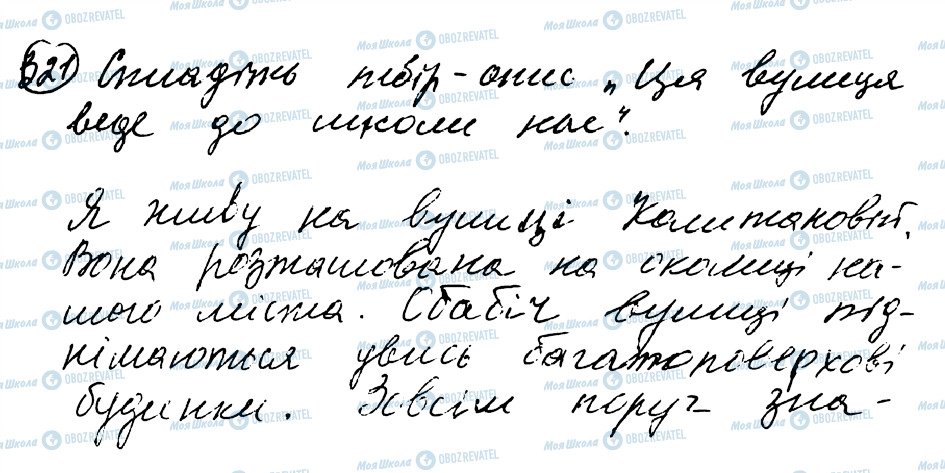 321 Складіть твір-опис „Ця вулиця
веде до школи нас".
Я живу на вулиці Каштановій.
Вона розташована на околиці на-
шого міста. Обабіч вулиці під-
німаються увись багатоповерхові
будинки. Зовсім поруч зна-
МояШкола OBOZREVATEL